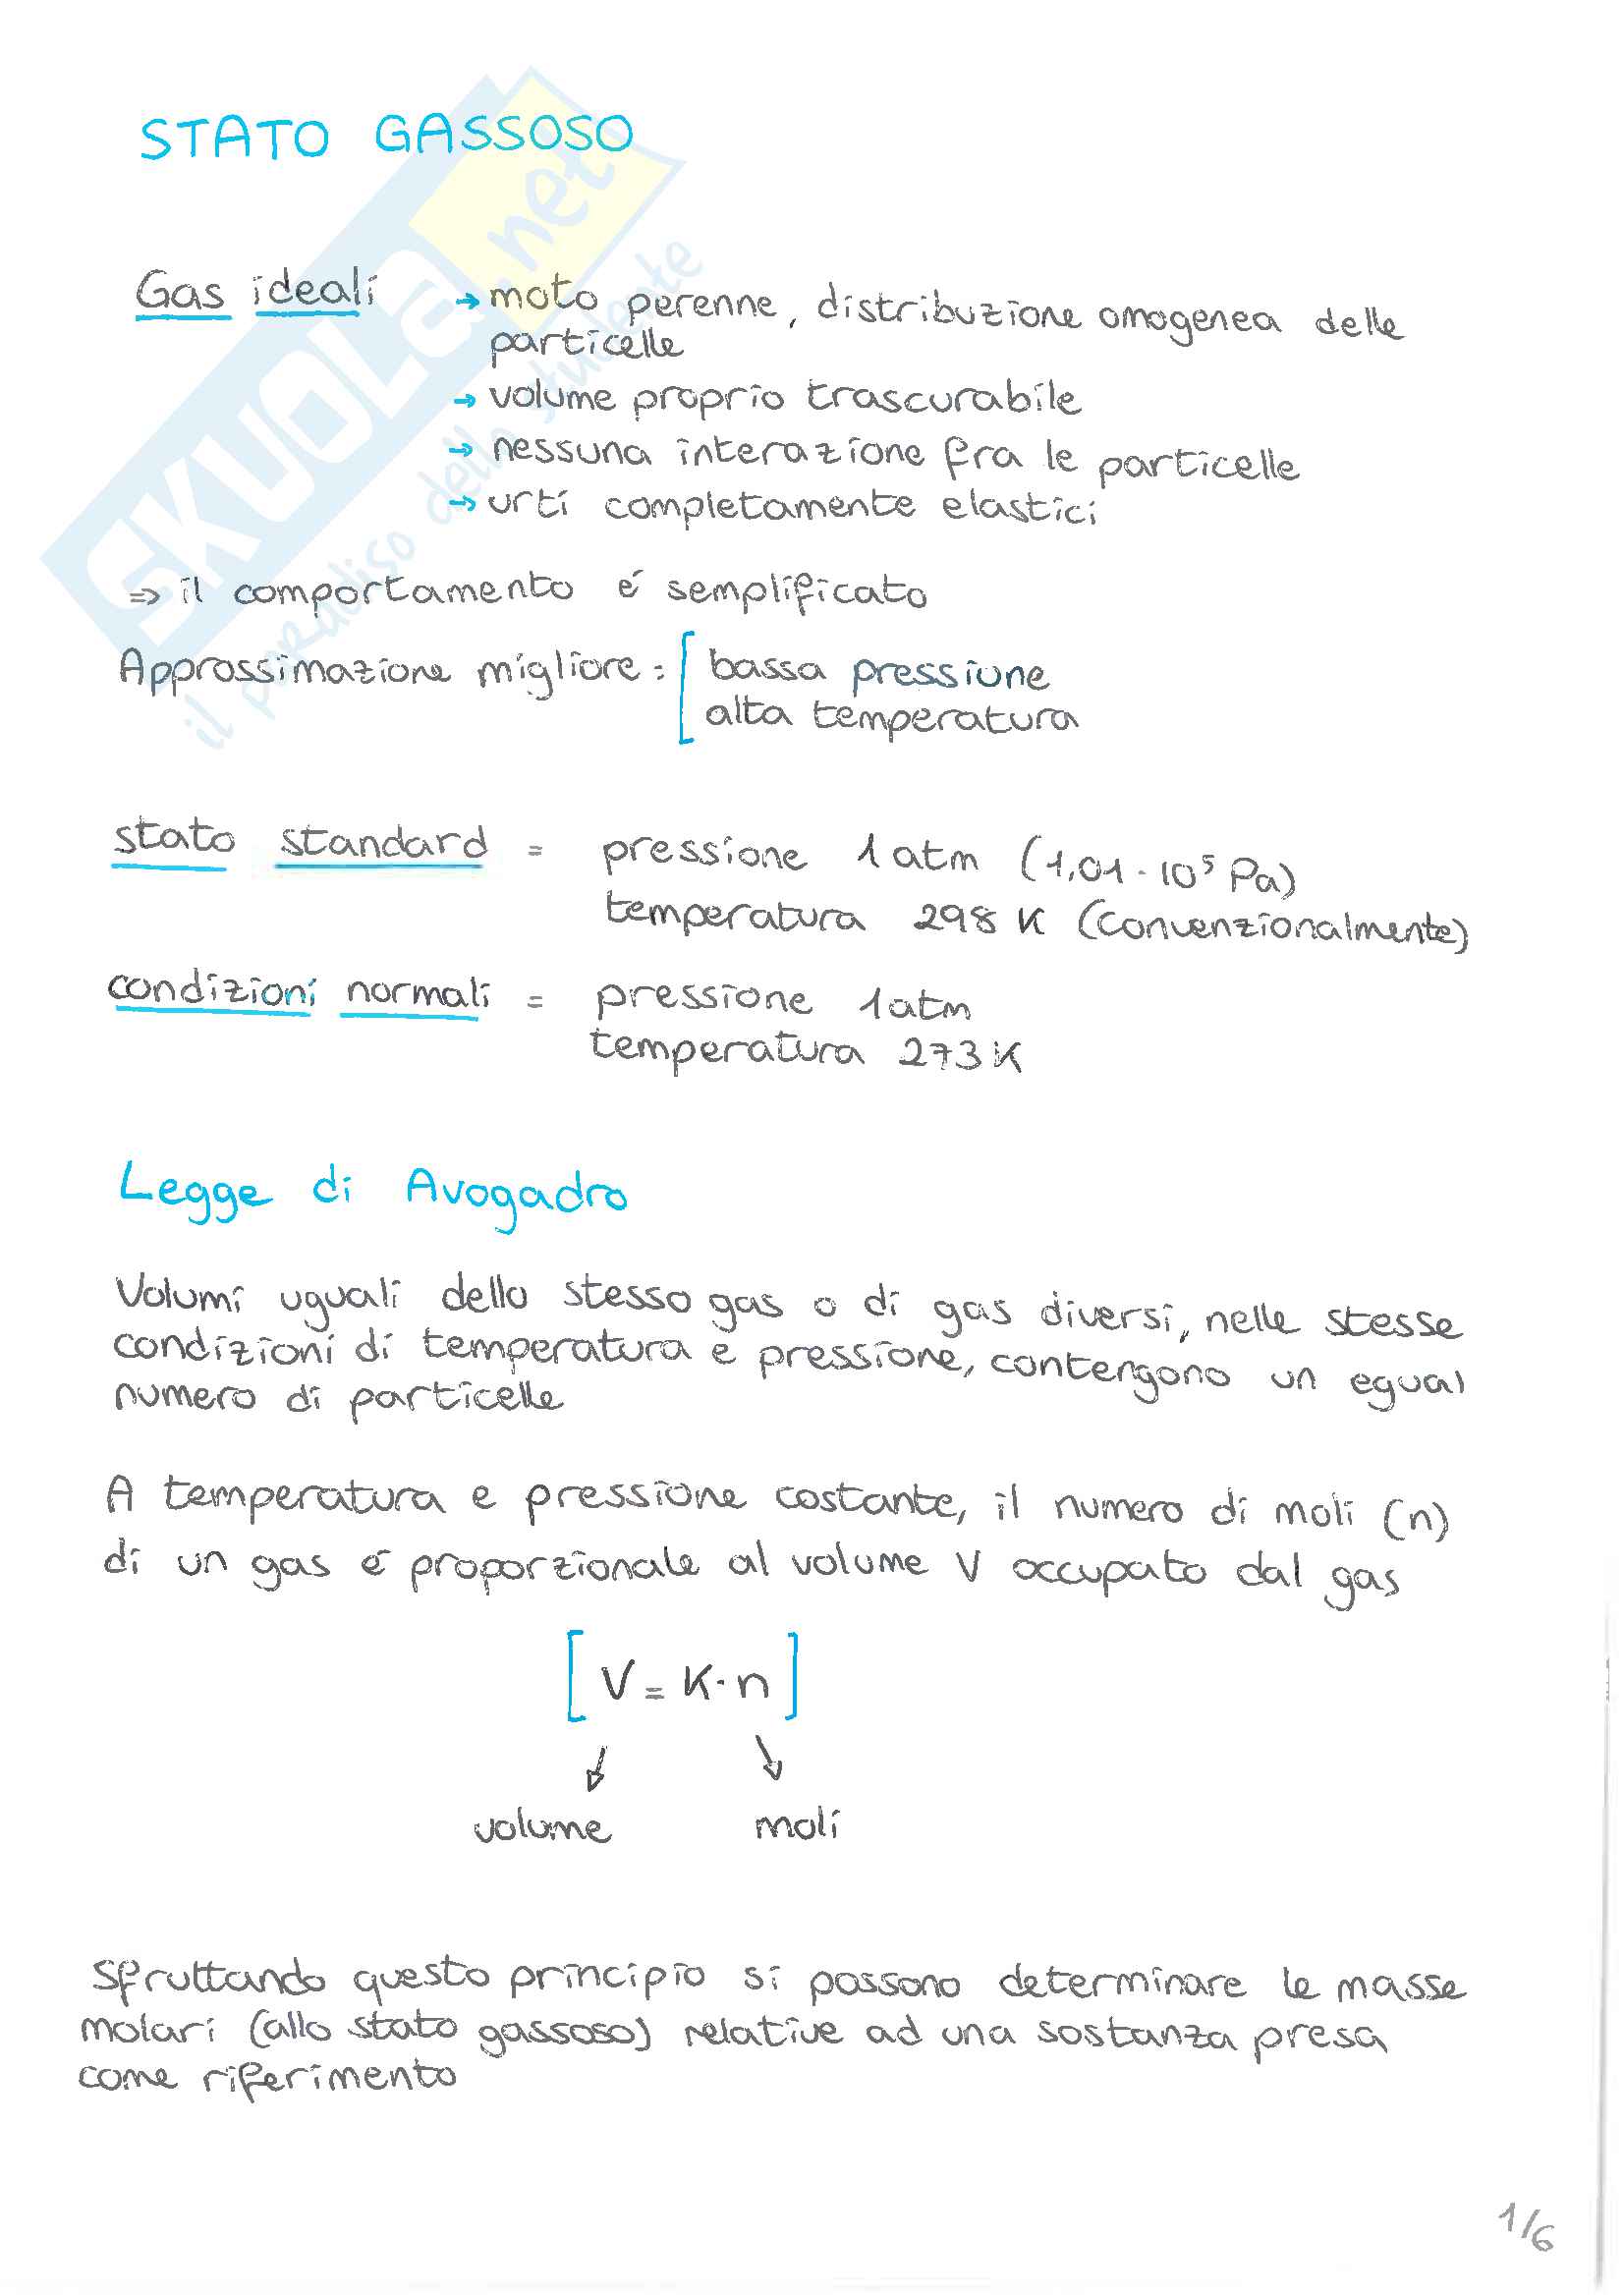 STATO GASSOSO
Gas ideali → moto perenne, distribuzione omogenea delle
particelle
→ volume proprio trascurabile
→ nessuna interazione fra le particelle
→ urti completamente elastici
⇒ il comportamento é semplificato
Approssimazione migliore : [ bassa pressione
alta temperatura
stato standard = pressione 1 atm (1,01 · 10⁵ Pa)
temperatura 298 K (convenzionalmente)
condizioni normali = pressione 1 atm
temperatura 273 K
Legge di Avogadro
Volumi uguali dello stesso gas o di gas diversi, nelle stesse
condizioni di temperatura e pressione, contengono un egual
numero di particelle
A temperatura e pressione costante, il numero di moli (n)
di un gas é proporzionale al volume V occupato dal gas
[V = K · n]
↓ ↘
volume moli
Sfruttando questo principio si possono determinare le masse
molari (allo stato gassoso) relative ad una sostanza presa
come riferimento
1/6
SKUOLA.net
il paradiso dello studente